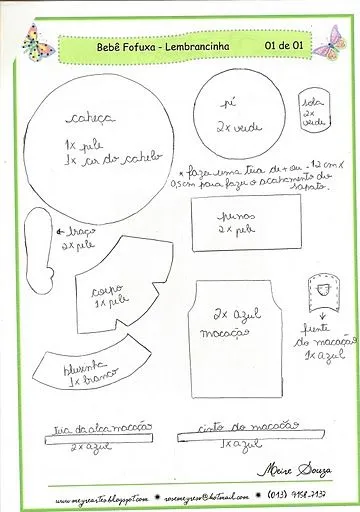 Bebê Fofuxa - Lembrancinha 01 de 01
cabeça
1x pele
1x cor do cabelo
pé
2x verde
sola
2x
verde
* fazer uma tira de + ou - 12 cm x
0,5cm para fazer o acabamento do
sapato.
← braço
2x pele
pernas
2x pele
corpo
1x pele
2x azul
macacão
frente
do macacão
1x azul
blusinha
1x branco
tira da alça macacão
2x azul
cinto do macacão
1x azul
Meire Souza
www.meyreartes.blogspot.com * rosemeyreso@hotmail.com * (013) 9158-7137